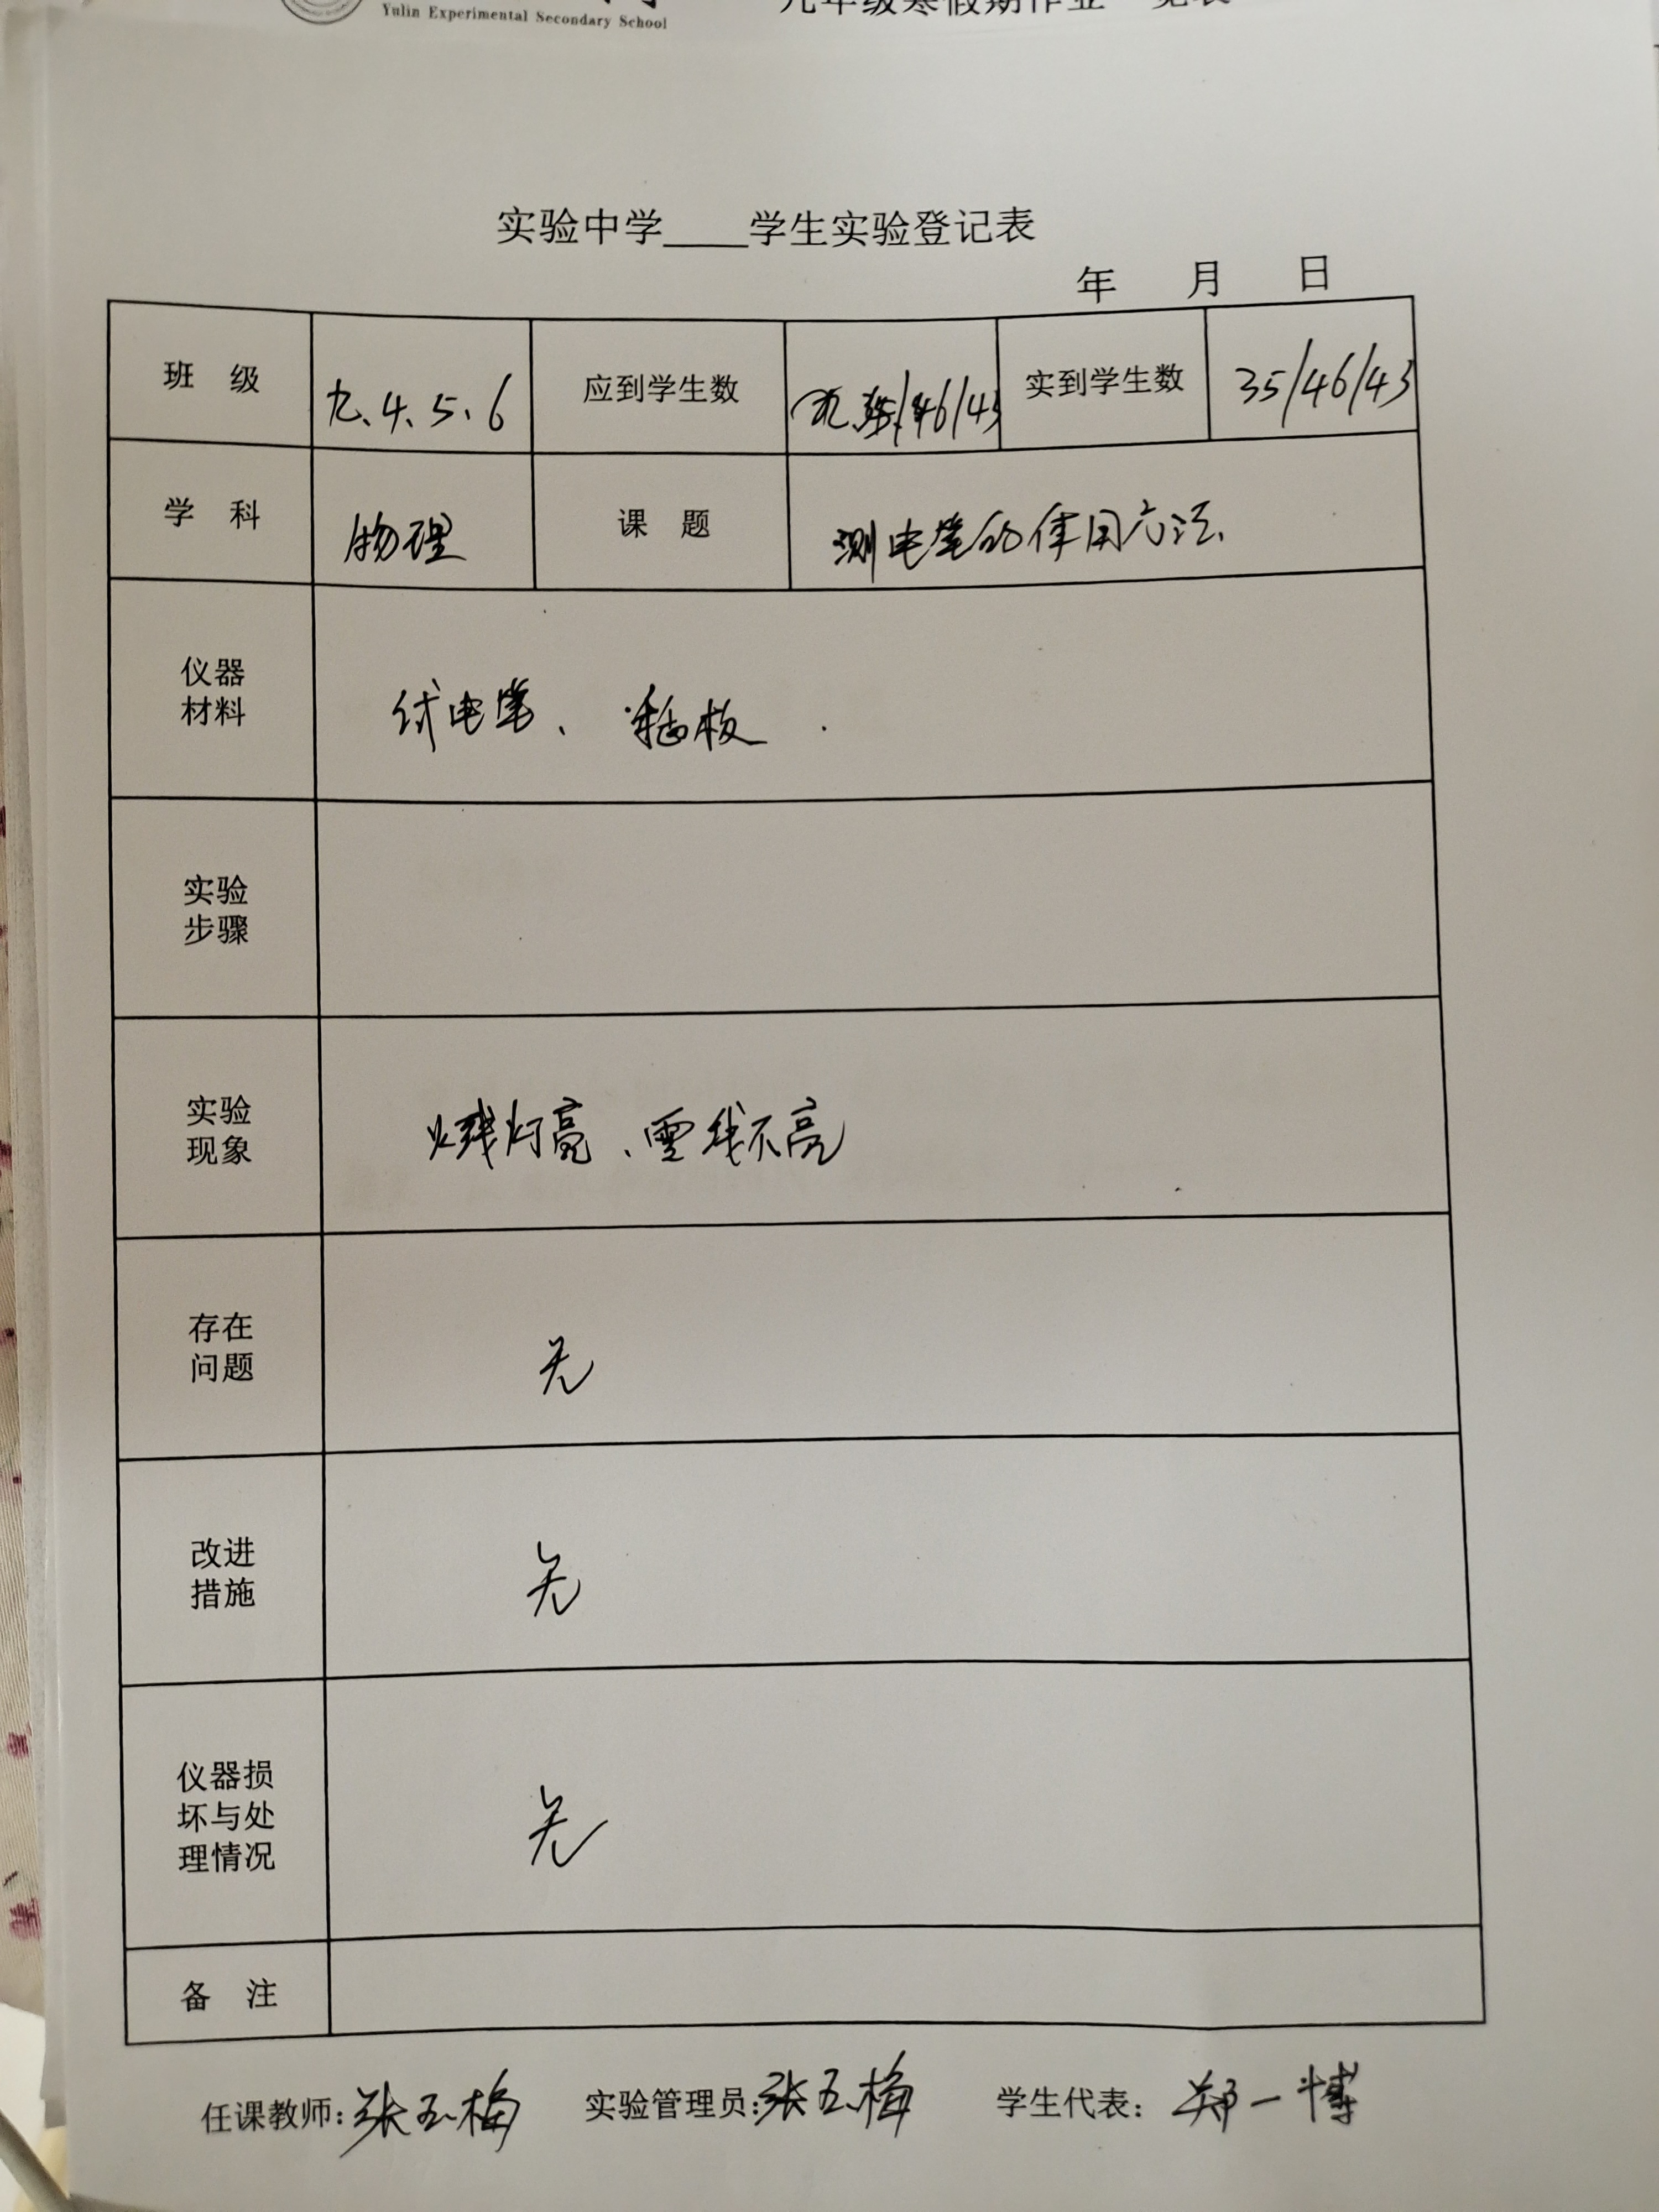 Yulin Experimental Secondary School
九年级寒假期作业一览表
实验中学____学生实验登记表
年 月 日
班 级 九.4.5.6 应到学生数 35/46/43 实到学生数 35/46/43
学 科 物理 课 题 测电笔的使用方法.
仪器材料 试电笔、插板.
实验步骤
实验现象 火线灯亮、零线不亮
存在问题 无
改进措施 无
仪器损坏与处理情况 无
备 注
任课教师:张玉梅 实验管理员:张玉梅 学生代表:郑一博